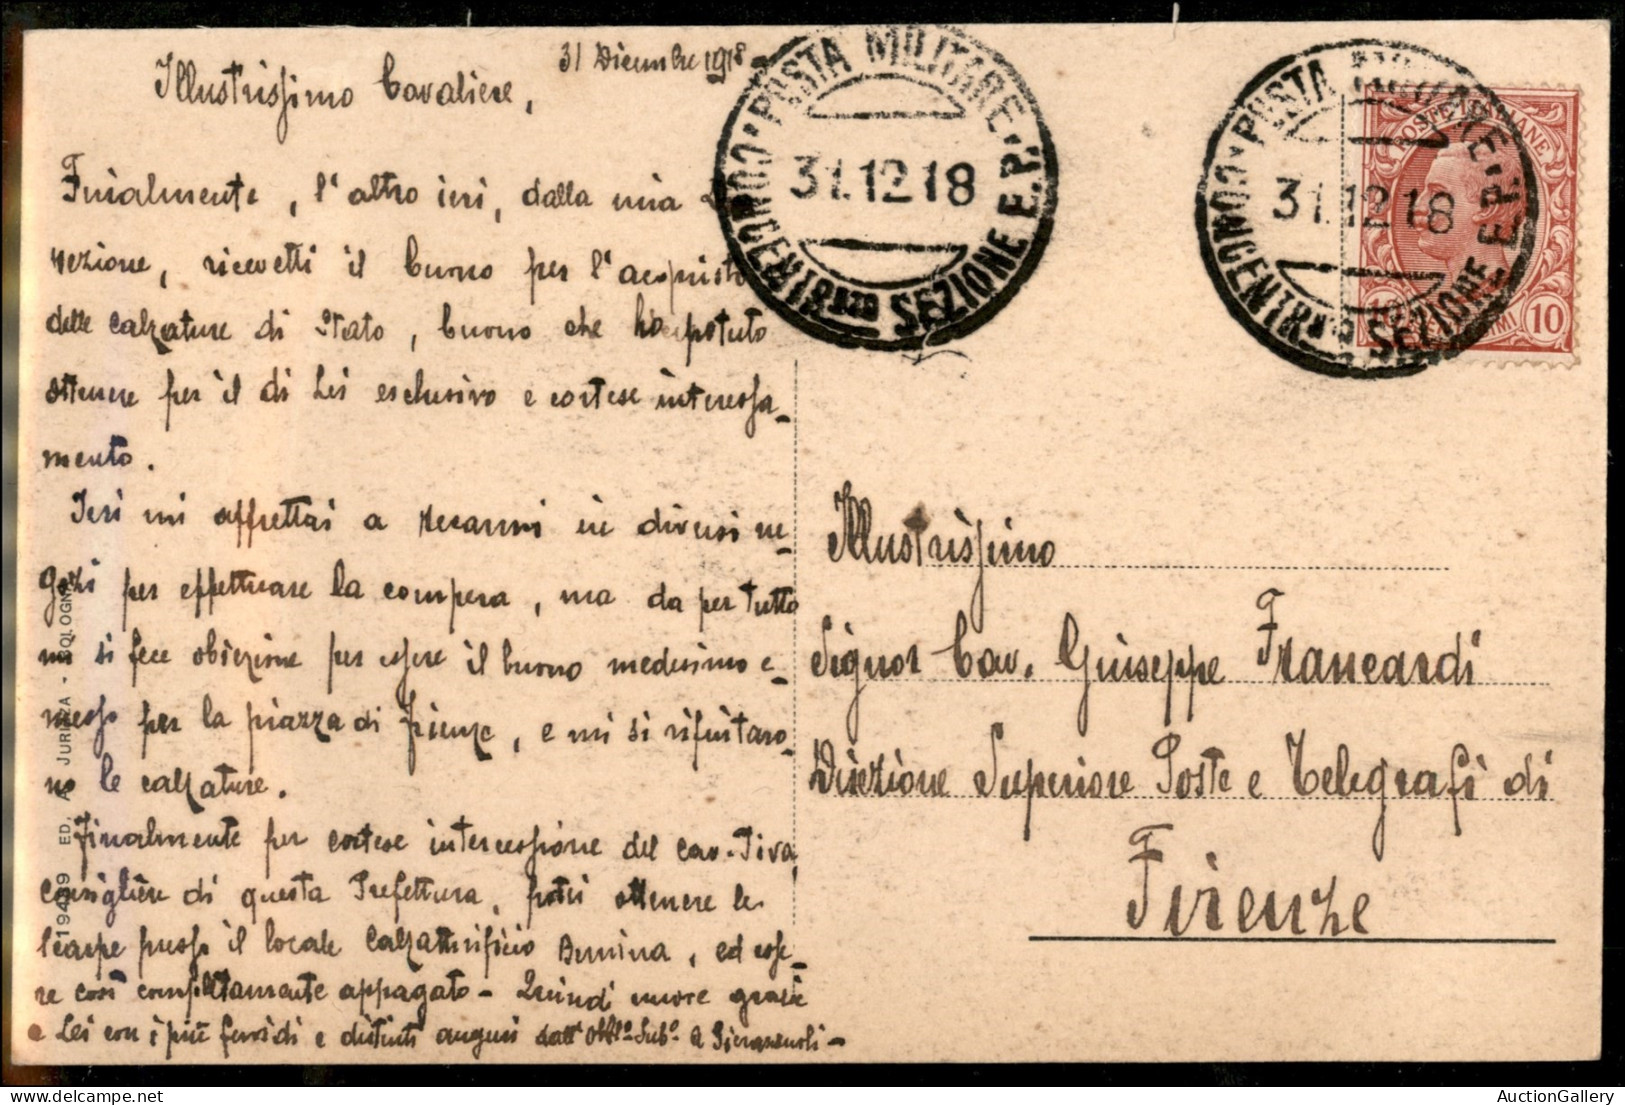 31 Dicembre 1918
Illustrissimo Cavaliere,
Finalmente, l'altro ieri, dalla mia Di
rezione, ricevetti il buono per l'acquisto
delle calzature di Stato, buono che ho potuto
ottenere per il di Lei esclusivo e cortese interessa-
mento.
Ieri mi affrettai a recarmi in diversi ne-
gozi per effettuare la compera, ma da per tutto
mi si fece obiezione per essere il buono medesimo e-
messo per la piazza di Firenze, e mi si rifiutaro-
no le calzature.
Finalmente per cortese intercessione del cav. Tiva,
consigliere di questa Prefettura, potei ottenere le
scarpe presso il locale Calzaturificio , ed esse-
re così completamente appagato - Quindi nuove grazie
a Lei con i più fervidi e distinti auguri dall' Obbl.o Sub.o
POSTA MILITARE
31.12.18
CONCENTRto SEZIONE E.P.
POSTA MILITARE
31.12.18
CONCENTRto SEZIONE E.P.
POSTE ITALIANE
10 CENTESIMI 10
Illustrissimo
Signor Cav. Giuseppe Francardi
Direzione Superiore Poste e Telegrafi di
Firenze
19499 ED. A. JURIZZA - BOLOGNA
AuctionGallery